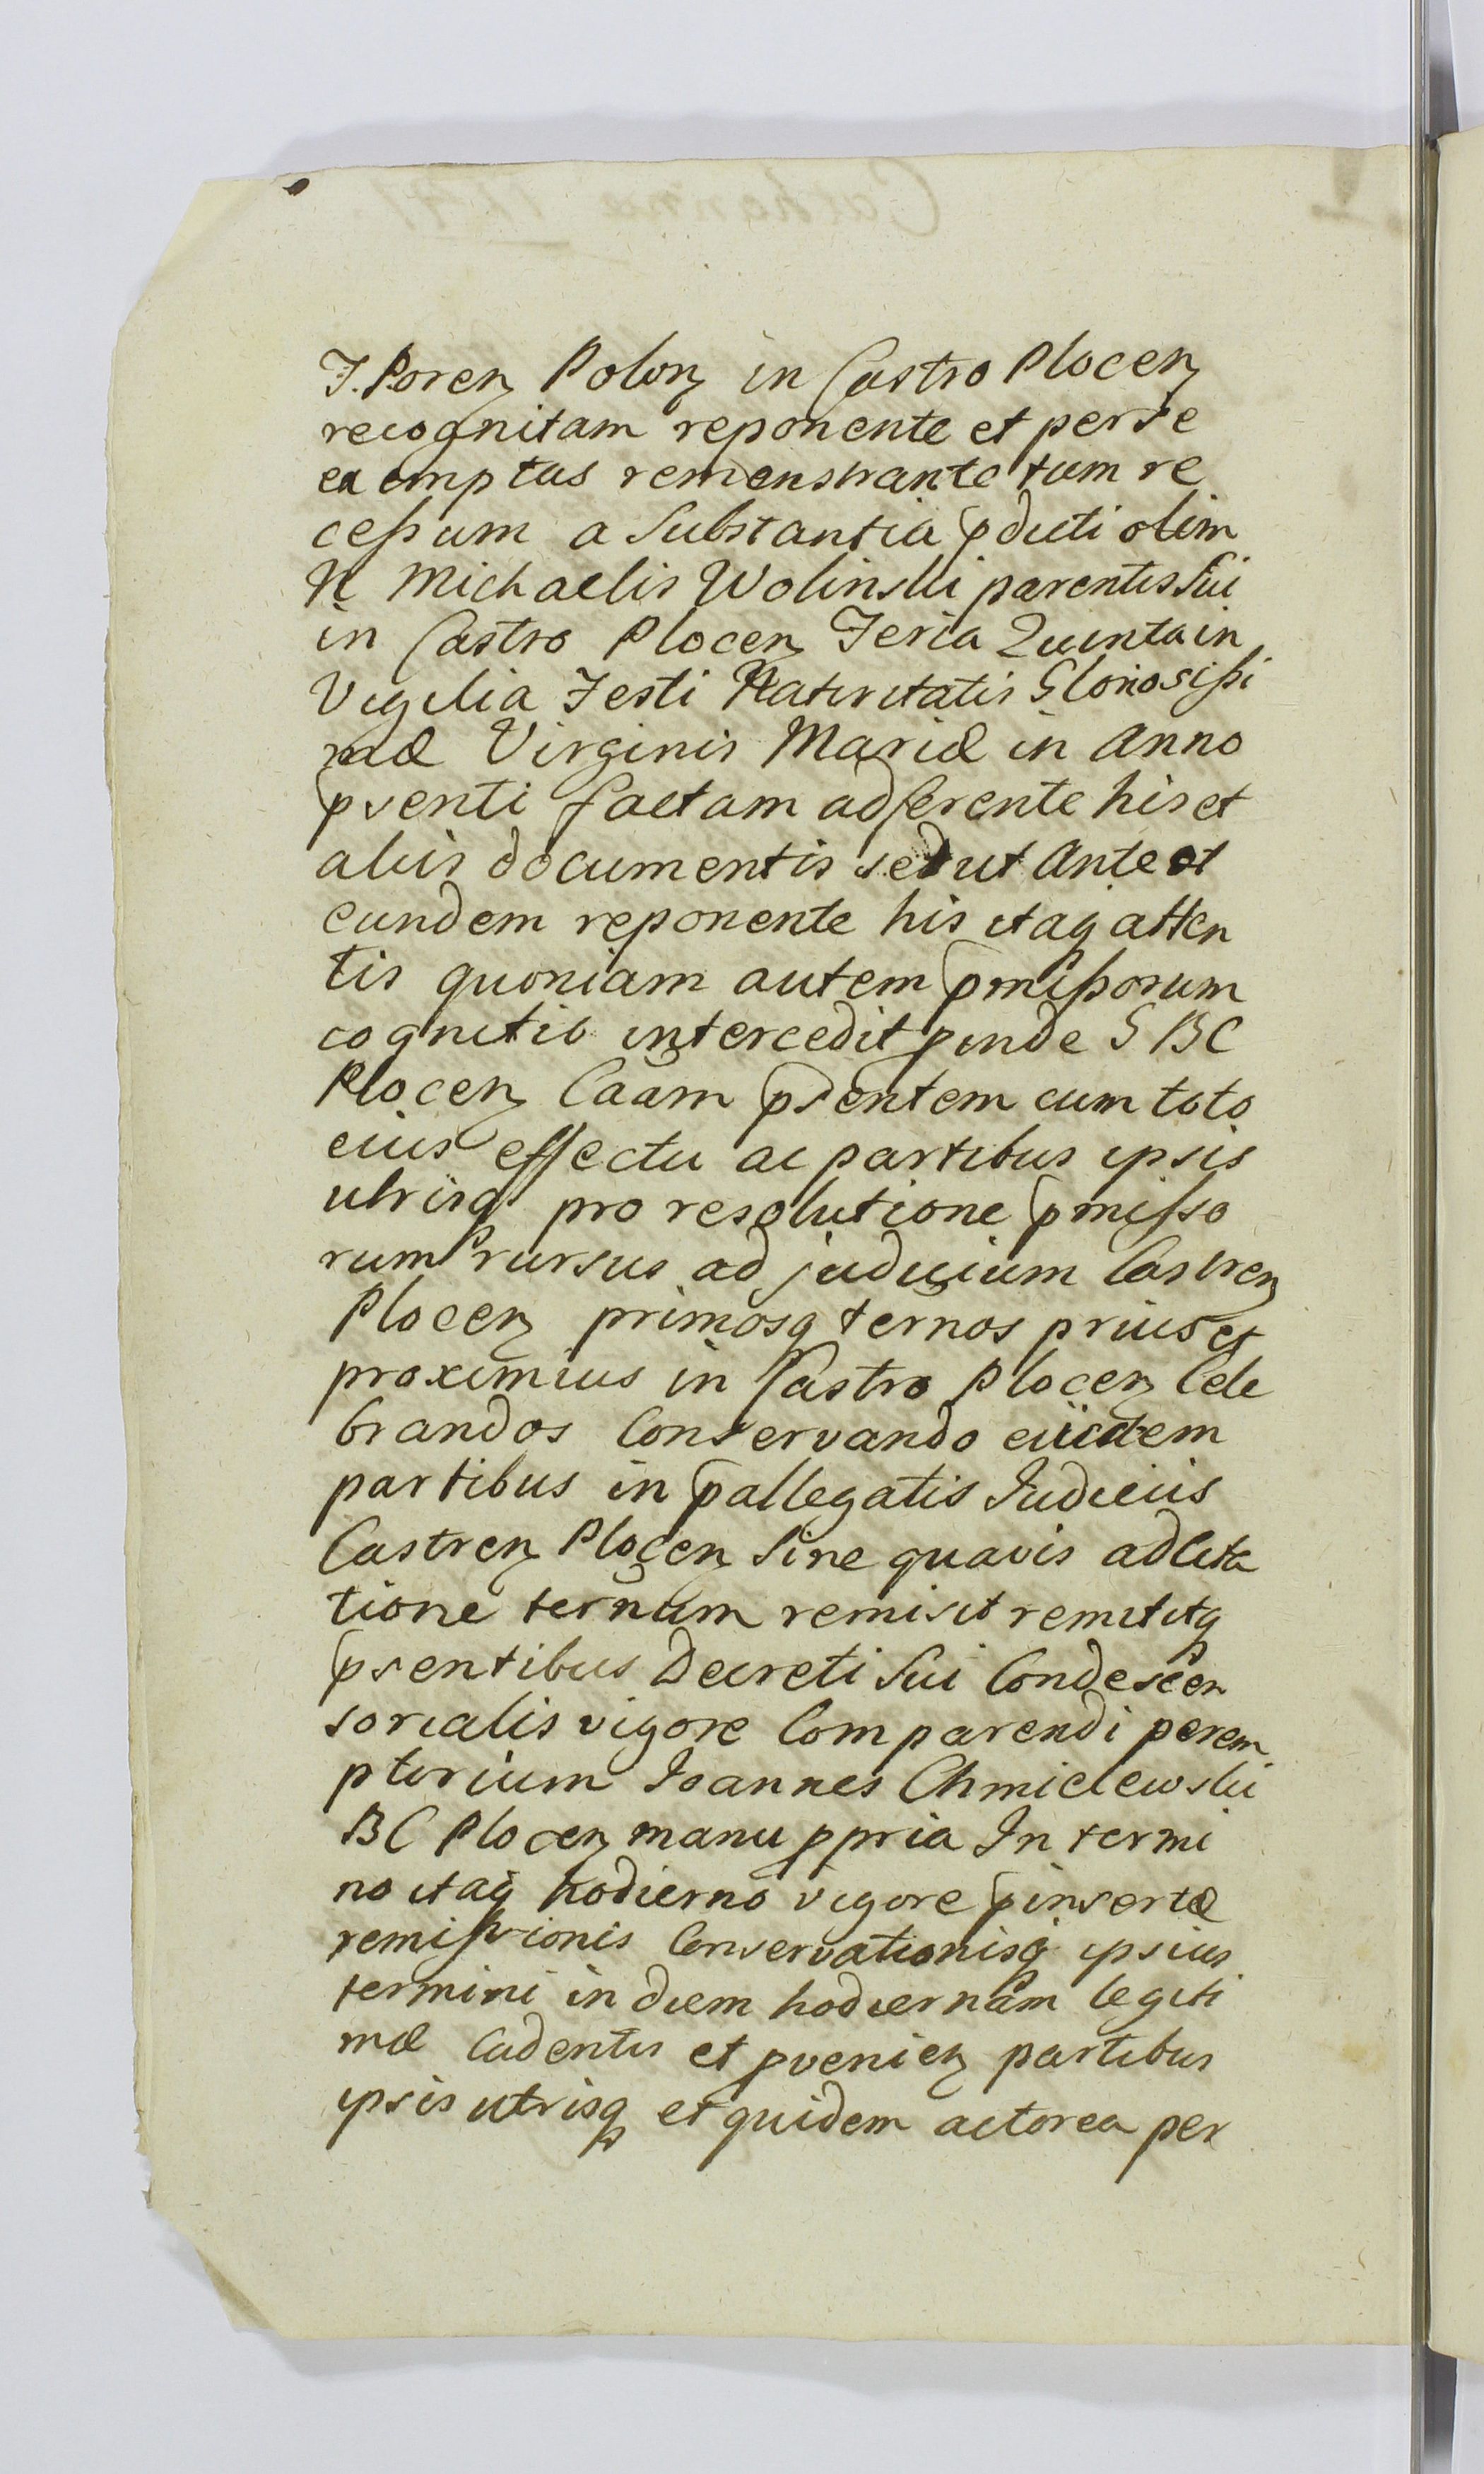 F. Poren Polon in Castro Plocen
recognitam reponente et per se
ea emptas remonstrante tum re
cessum a Substantia pduti olim
N Michaelis Wolinski parentis sui
in Castro Plocen Feria Quinta in
Vigilia Festi Nativitatis Gloriosissi
mæ Virginis Mariæ in Anno
psenti factam adferente his et
aliis documentis sed ut ante et
eundem reponente his itaq atten
tis quoniam autem pmissorum
cognitio intercedit pinde S BC
Plocen Caãm psentem cum toto
eius effectu ac partibus ipsis
utrisq pro resolutione pmisso
rum rursus ad judicium Castren
Plocen primosq ternos prius et
proximius in Castro Plocen Cele
brandos Conservando eiisdem
partibus in pallegatis Judiciis
Castren Plocen Sine quavis adcita
tione ternum remisit remititq
psentibus Decreti Sui Condescen
sorialis vigore Comparendi perem
ptorium Joannes Chmielewski
BC Plocen manu ppria In termi
no itaq hodierno vigore pinsertæ
remissionis Conservationisq ipsius
termini in diem hodiernam legiti
mæ Cadentis et pvenien partibus
ipsis utrisq et quidem actorea per